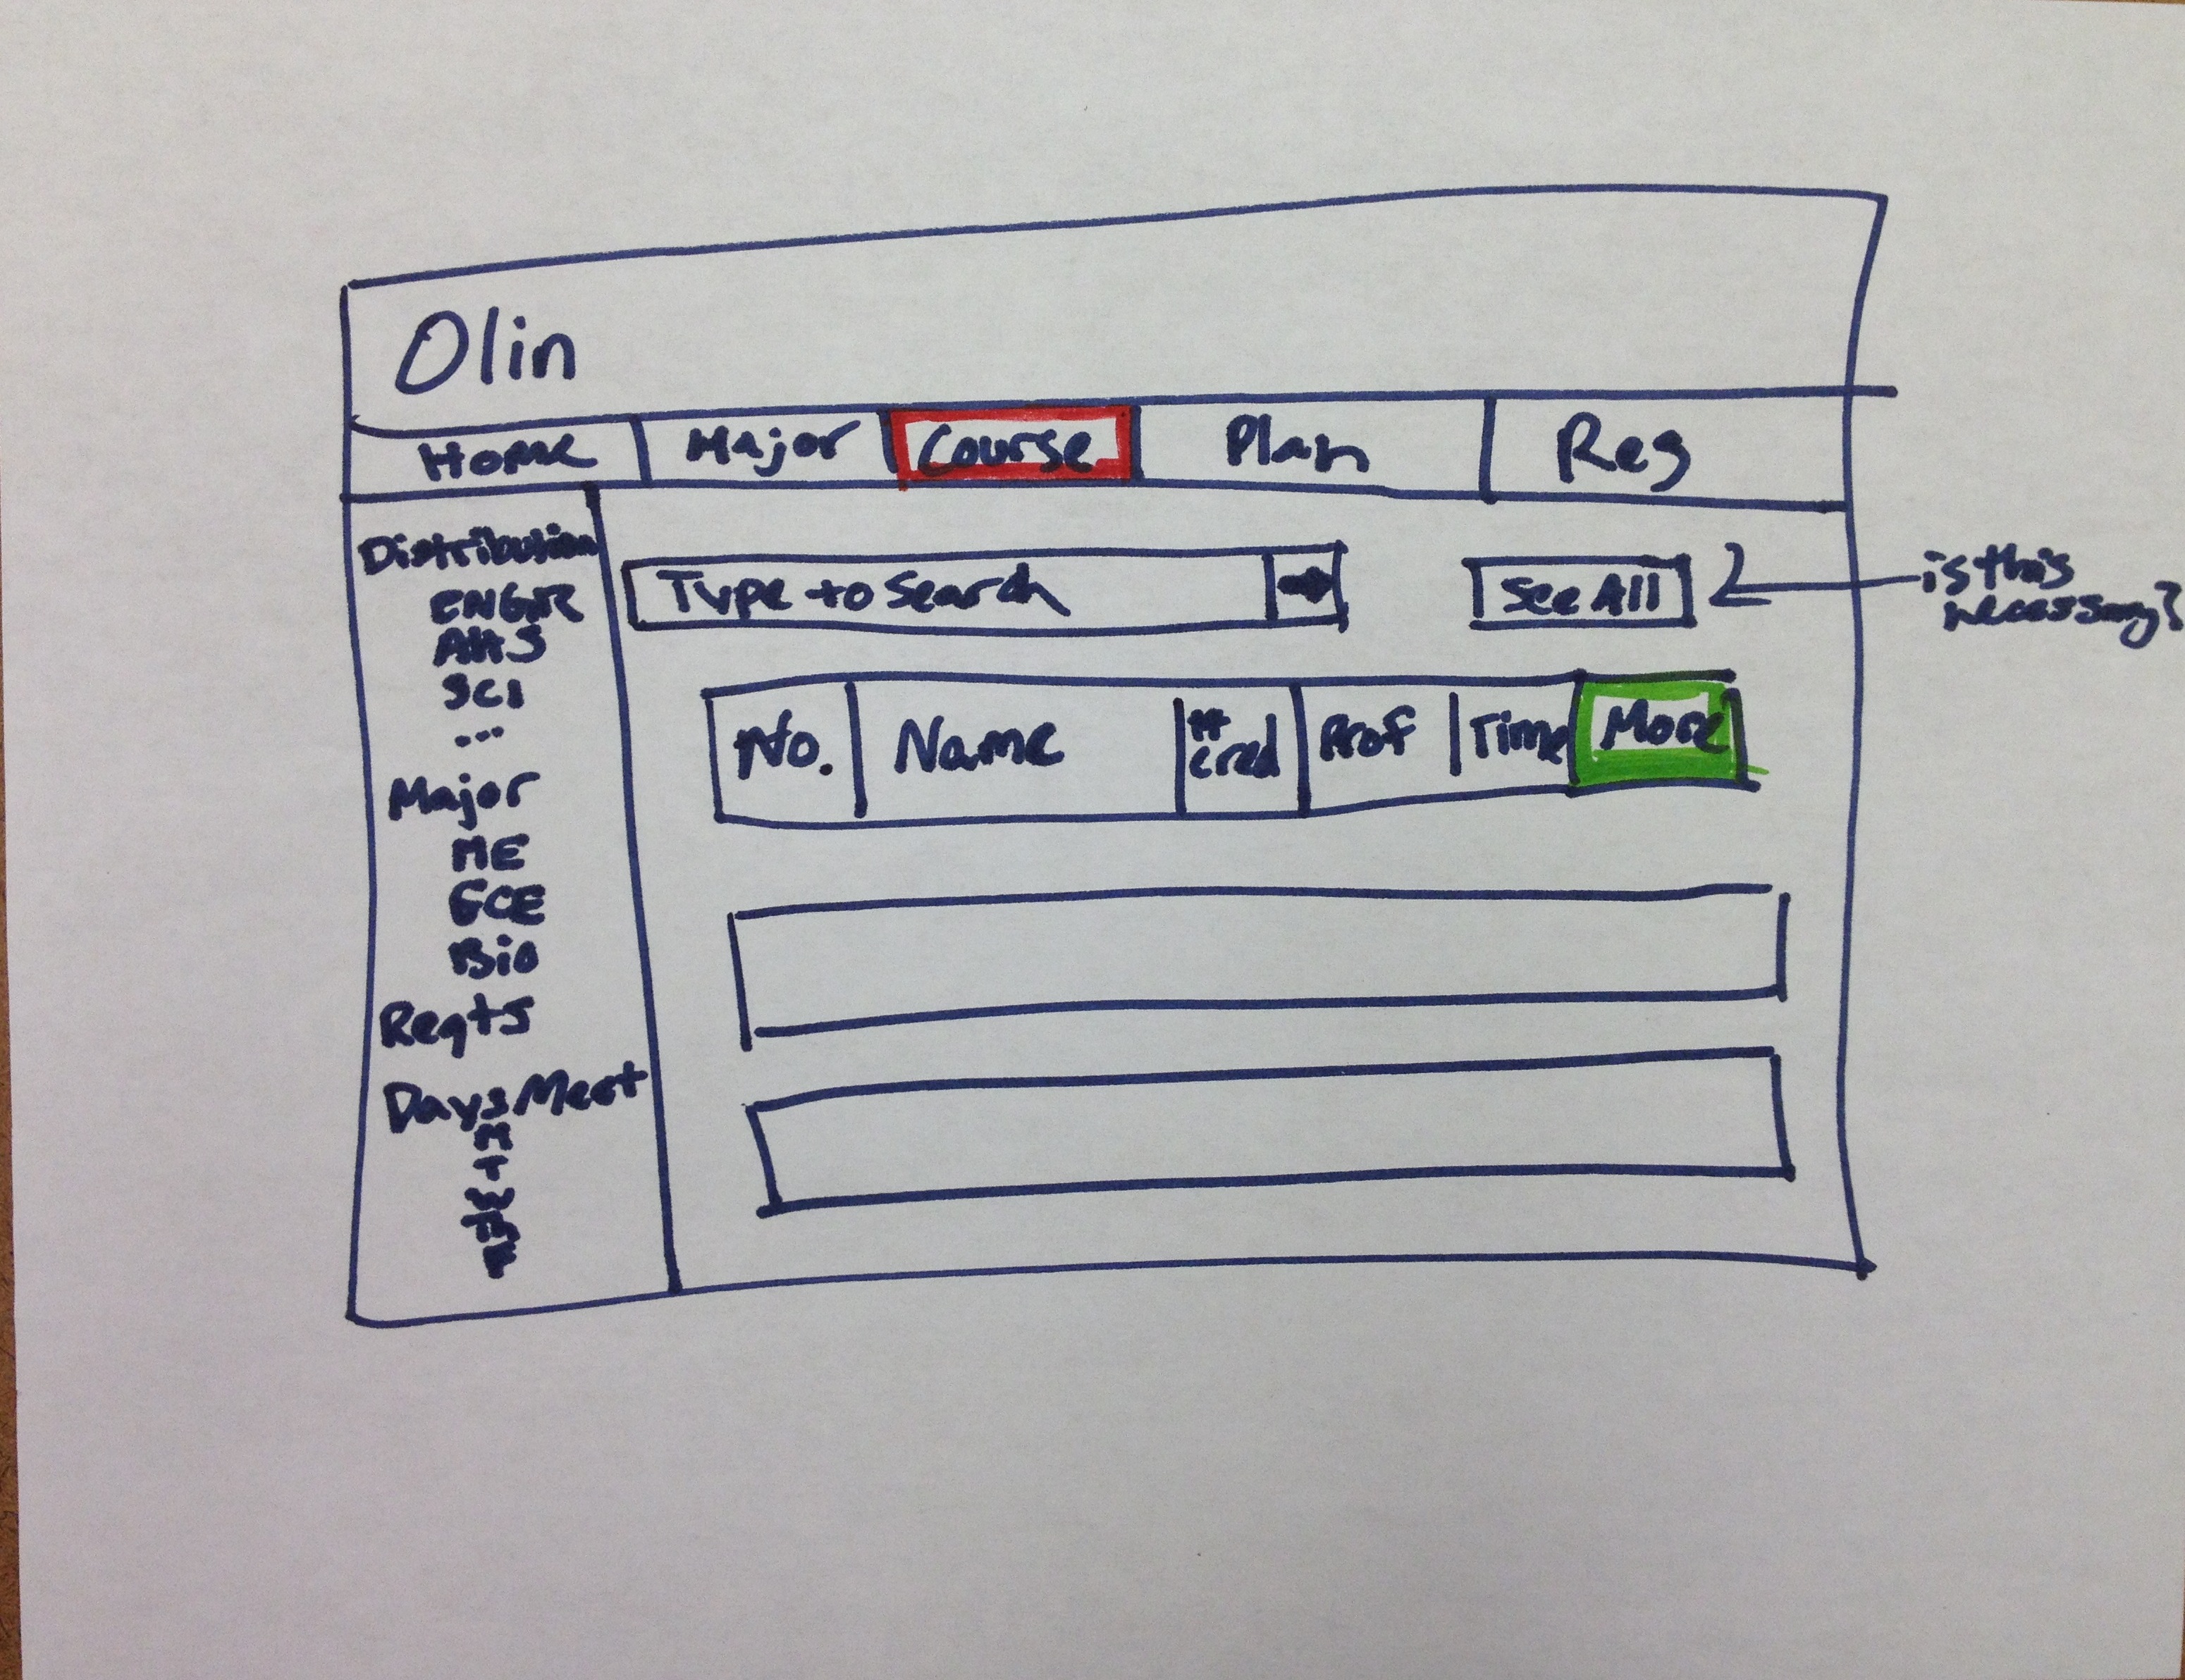 Olin
Home Major Course Plan Reg
Distribution
ENGR
AHS
SCI
...
Major
ME
ECE
Bio
Reqts
Days Meet
M
T
Type to Search → See All
is this
necessary?
No. Name # cred Prof Time More